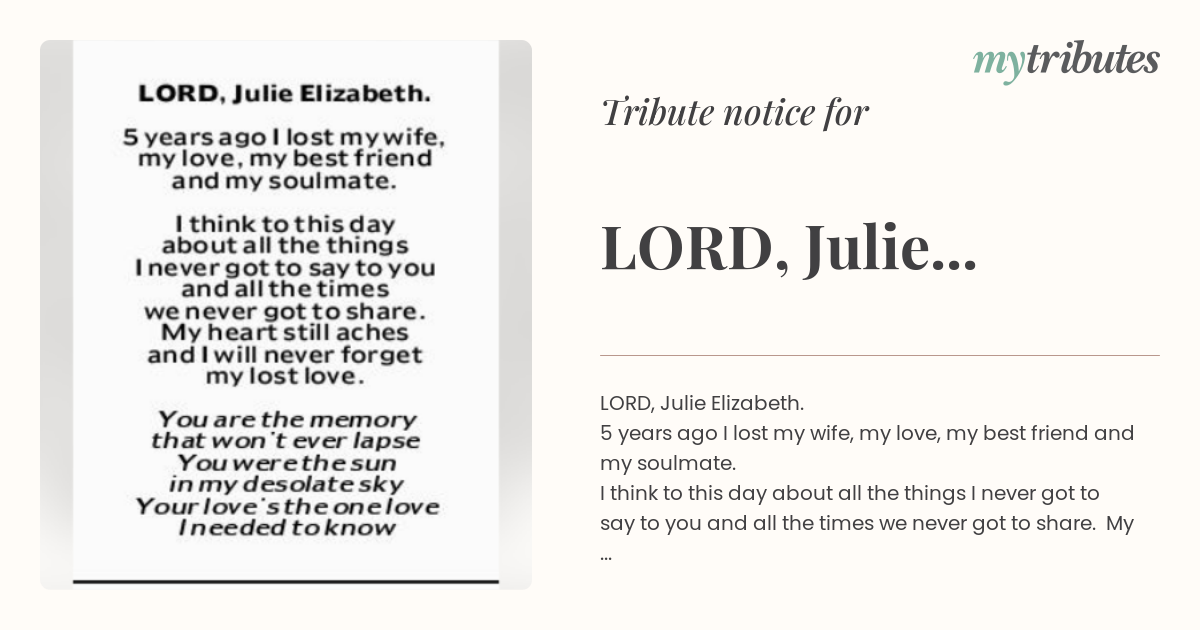 LORD, Julie Elizabeth.
5 years ago I lost my wife,
my love, my best friend
and my soulmate.
I think to this day
about all the things
I never got to say to you
and all the times
we never got to share.
My heart still aches
and I will never forget
my lost love.
You are the memory
that won't ever lapse
You were the sun
in my desolate sky
Your love's the one love
I needed to know
mytributes
Tribute notice for
LORD, Julie...
LORD, Julie Elizabeth.
5 years ago I lost my wife, my love, my best friend and
my soulmate.
I think to this day about all the things I never got to
say to you and all the times we never got to share.  My
...